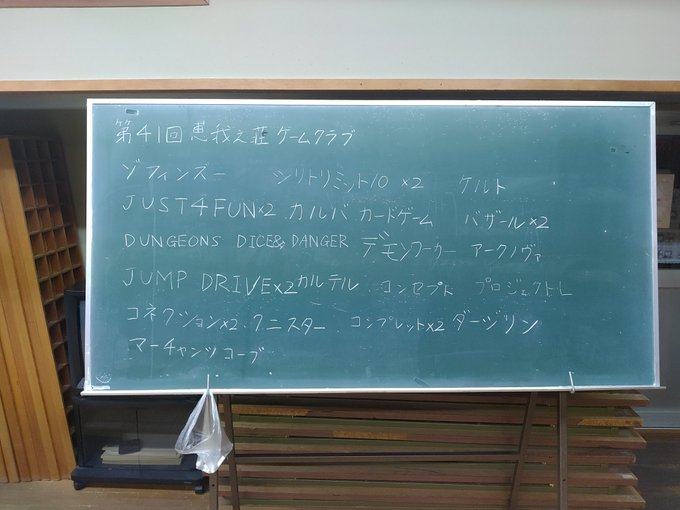 第41回 恵我之荘 ゲームクラブ
ゾフィンズー シリトリミット10 ×2 ケルト
JUST4FUN×2 カルバ カードゲーム バザール×2
DUNGEONS DICE& DANGER デモンワーカー アークノヴァ
JUMP DRIVE×2 カルテル コンセプト プロジェクトL
コネクション×2 クニスター コンプレット×2 ダージリン
マーチャンツコーブ